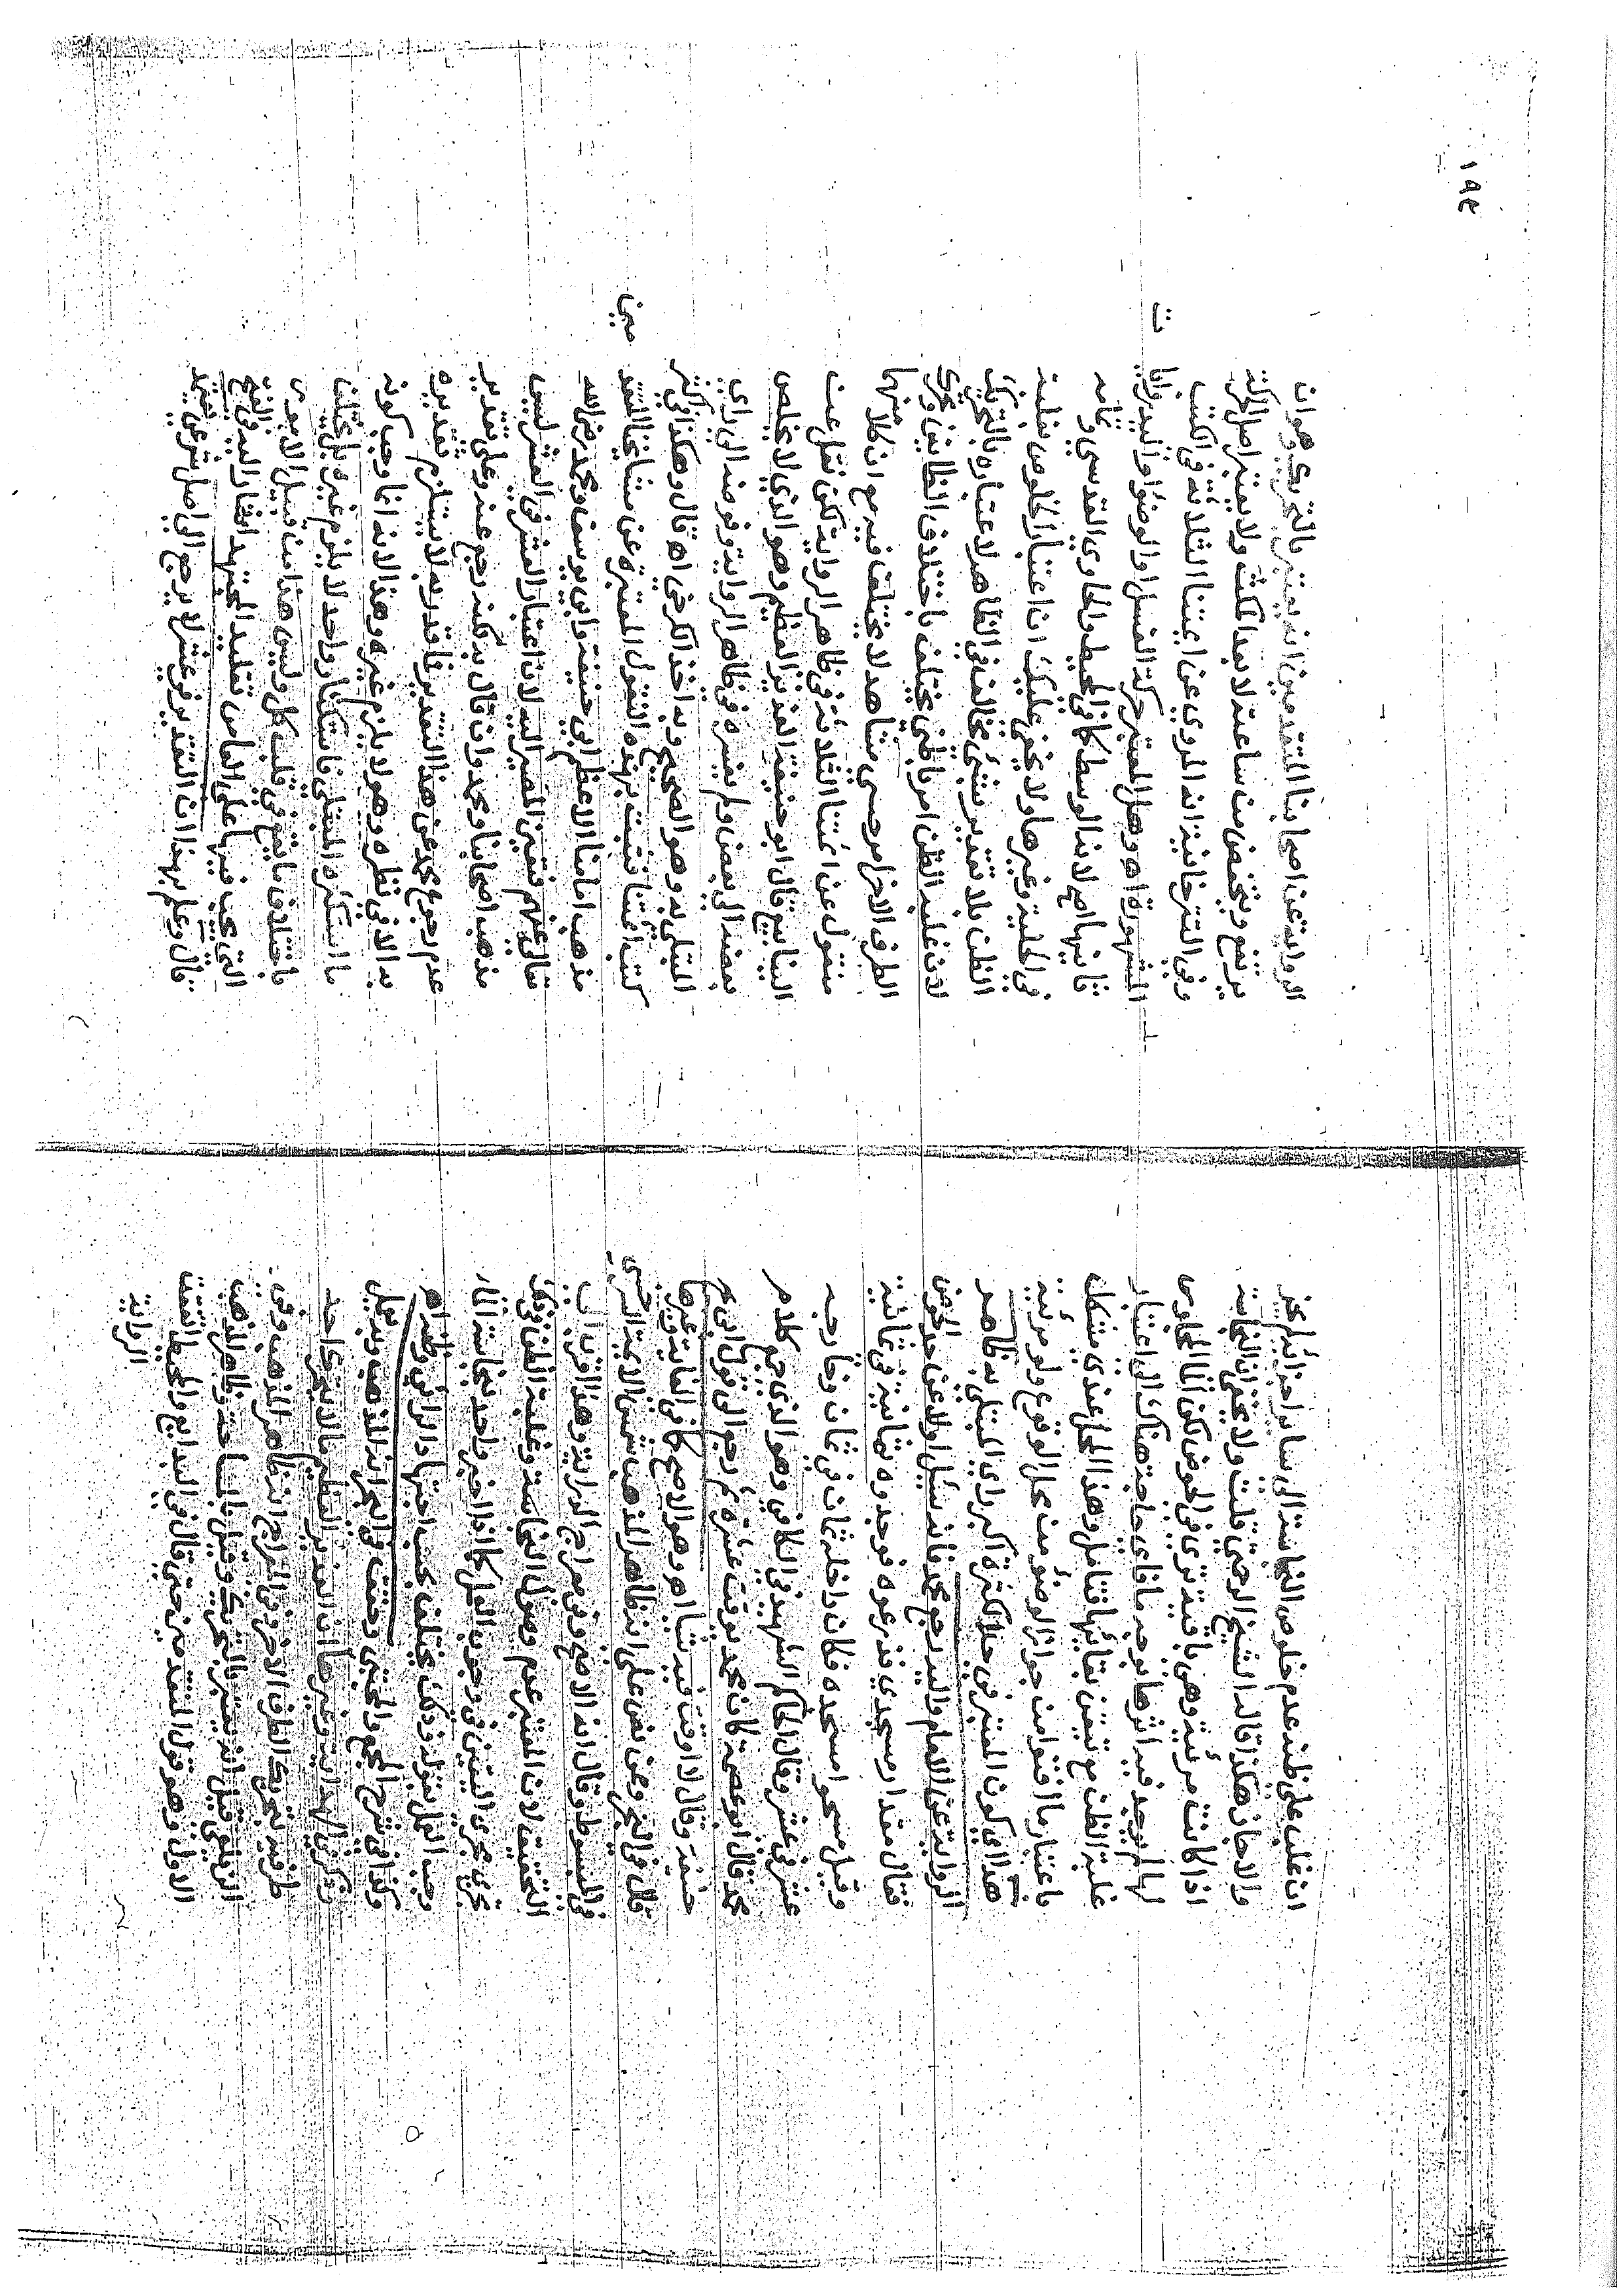 ان غلب على ظنه عدم خلوص النجاسة الى سائر اجزائه لم يجز
والا جاز هكذا قاله الشيخ الرحمتي قلت ولا يخفى ان النجاسة
اذا كانت مرئية وهي باقية ترى في الحوض لكن الماء المحاوى
لها لم يوجد فيه اثرها بوجه ما فاي حاجة هناك الى اعتبار
غلبة الظن مع تيقن بقائها فتامل وهذا المحل عندي مشكل
باعتبار ما افتوا من جواز الوضوء من محل الوقوع ولو مرئية
هذا اي كون المعتبر في حد الكثرة اكبر راي المبتلى به ظاهر
الرواية عن الامام واليه رجع محمد فانه سئل اولا عن حد الحوض
فقال مقدار مسجدي فذرعوه فوجدوه ثمانية في ثمانية
وقيل مسحوا مسجده فكان داخله ثمان في ثمان وخارجه
عشر في عشر وقال الحاكم الشهيد في الكافي وهو الذي جمع كلام
محمد قال ابو عصمة كان محمد يوقت عشرة ثم رجع الى قول ابي
حنيفة وقال لا اوقت فيه شيئا اه وهو الاصح كما في الغاية وغيرها
قال في البحر وممن نص على انه ظاهر المذهب شمس الائمة السرخسي
في المبسوط وقال انه الاصح وفي معراج الدراية وهذا اقرب الى
التحقيق لان المعتبر عدم وصول النجاسة وغلبة الظن في ذلك
تجري مجرى اليقين في وجوب العمل كما اذا اخبر واحد بنجاسة الماء
وجب العمل بقوله وذلك يختلف بحسب اجتهاد الرائي وظنه اه
وكذا في شرح المجمع والمجتبى وحقق في البحر انه المذهب وبه يعمل
وذكر في الهداية وغيرها ان الغدير العظيم ما لا يتحرك احد
طرفيه بتحريك الطرف الاخر وفي المعراج انه ظاهر المذهب وفي
الزيلعي قيل انه يعتبر بالتحريك وقيل بالمساحة وظاهر المذهب
الاول وهو قول المتقدمين حتى قال في البدايع والمحيط اتفقت
الرواية
١٩٤
الرواية عن اصحابنا المتقدمين انه يعتبر بالتحريك وهو ان
يرتفع وينخفض من ساعته لا بعد المكث ولا يعتبر اصل الحركة
وفي التترخانية انه المروي عن ايمتنا الثلاثة في الكتب
المشهورة اه وهل المعتبر حركة الغسل او الوضوء او اليد روايات
ثانيها اصح لانه الوسط كما في المحيط والحاوي القدسي وتمامه
في الحلية وغيرها ولا يخفى عليك ان اعتبار الخلوص بغلبة
الظن بلا تقدير بشيء مخالف في الظاهر لاعتباره بالتحريك
لان غلبة الظن امر باطني يختلف باختلاف الظانين وتحرك
الطرف الاخر امر حسي مشاهد لا يختلف فيه مع ان كلا منهما
منقول عن ائمتنا الثلاثة في ظاهر الرواية لكن نقل عن
الينابيع قال ابو حنيفة الغدير العظيم وهو الذي لا يخلص
بعضه الى بعض ولم يفسره في ظاهر الرواية وفوضه الى راي
المبتلى به وهو الصحيح وبه اخذ الكرخي اه قال وهكذا في اكثر
كتب ائمتنا فثبت بهذه النقول المعتبرة عن مشايخنا المتقدمين
مذهب امامنا الاعظم ابي حنيفة وابي يوسف ومحمد رضي الله
تعالى عنهم فتعين المصير اليه لان اعتبار العشر في العشر ليس
مذهب اصحابنا ومحمد وان قال به لكنه رجع عنه وعلى تقدير
عدم رجوع محمد عن هذا التقدير فما قدر به لا يستلزم تقديره
به الا في نظره وهو لا يلزم غيره وهذا لانه لما وجب كونه
ما استكثره المبتلى فاستكثار واحد لا يلزم غيره بل يختلف
باختلاف ما يقع في قلب كل وليس هذا من قبيل الامور
التي يجب فيها على العامي تقليد المجتهد اشار اليه في الفتح
قال وعلم بهذا ان التقدير بعشر لا يرجع الى اصل شرعي يعتمد